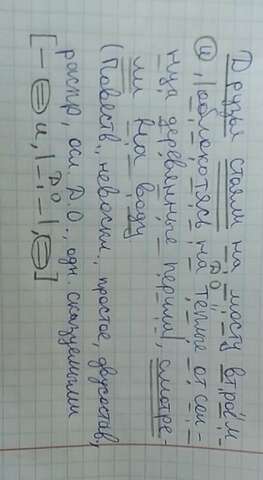 Друзья стояли на мосту втроём
Д О
и, |облокотясь на теплые от солн-
нца деревянные перила|, смотре-
ли на воду
(Повеств., невоскл., простое, двусостав,
распр, осл Д О., одн. сказуемыми
Д О
[— ⊜ и, |—.—|, ⊜]